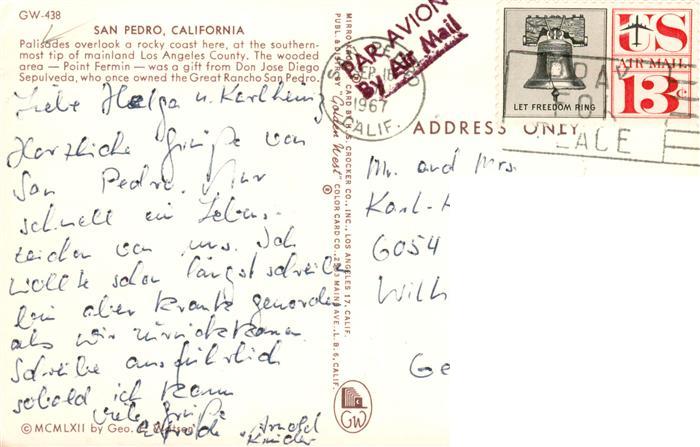 GW-438
SAN PEDRO, CALIFORNIA
Palisades overlook a rocky coast here, at the southern-
most tip of mainland Los Angeles County. The wooded
area — Point Fermin — was a gift from Don Jose Diego
Sepulveda, who once owned the Great Rancho San Pedro.
Liebe Helga u. Karlheinz
Herzliche Grüße von
San Pedro. Nur
schnell ein Lebens-
zeichen von uns. Ich
wollte schon längst schreiben
bin aber krank geworden
als wir zurückkamen
Schreibe ausführlich
sobald ich kann
Viele Grüße
Arnold
Kinder
© MCMLXII by Geo. E.
MIRRO
PUBL. & DIST. BY "Golden West"
CARD BY H. S. CROCKER CO., INC., LOS ANGELES 17, CALIF.
COLOR CARD CO., MAIN AVE., L. B. 6, CALIF.
GW
PAR AVION
By Air Mail
SEP 18
1967
CALIF.
LET FREEDOM RING
US
AIR MAIL
13c
PRAY
FOR
PEACE
ADDRESS ONLY
Mr. and Mrs.
Karl-H
6054
Wilh
Ge